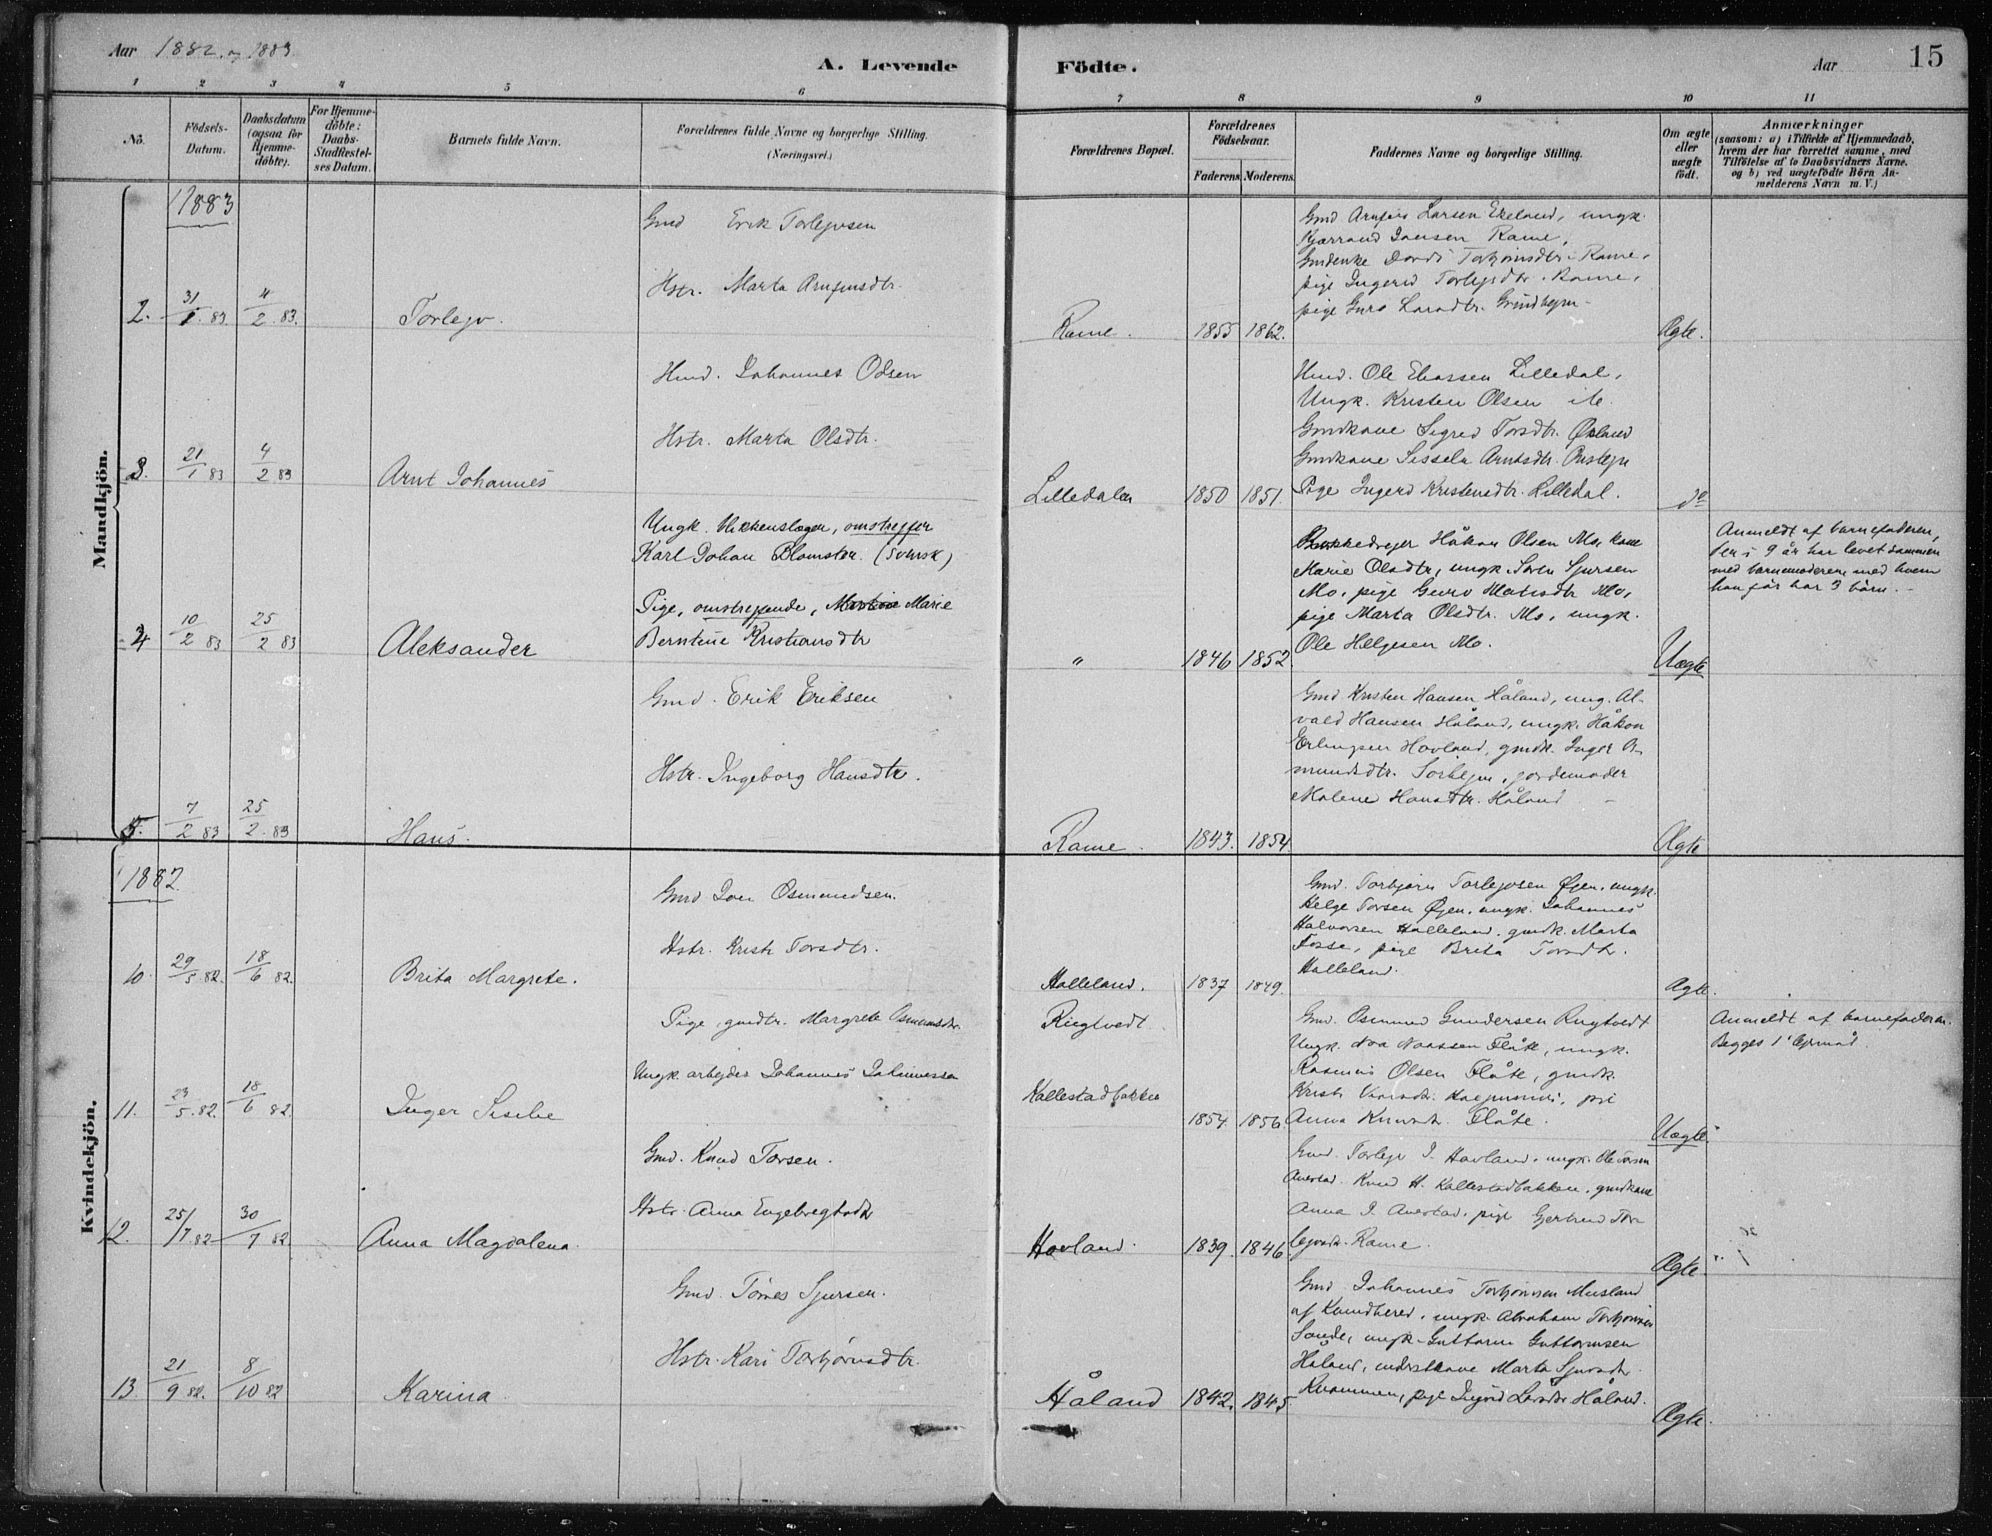 Aar 1882 og 1883
A. Levende Födte.
Aar
15
1 2 3 4 5 6 7 8 9 10 11
No.
Födsels-Datum.
Daabsdatum (ogsaa for Hjemme-döbte).
For Hjemme-döbte: Daabs-Stadfæstel-ses Datum.
Barnets fulde Navn.
Forældrenes fulde Navne og borgerlige Stilling.
(Næringsvei.)
Forældrenes Bopæl.
Forældrenes Födselsaar.
Faderens Moderens.
Faddernes Navne og borgerlige Stilling.
Om ægte eller uægte födt.
Anmærkninger
(saasom: a) i Tilfælde af Hjemmedaab, hvem der har forrettet samme, med Tilföielse af to Daabsvidners Navne. og b) ved uægtefödte Börn An-melderens Navn m. V.)
Mandkjön.
1883
2. 31/1 83 4/2 83. Torlejv.
Gmd Erik Torlejvsen
Hstr. Marta Arnfinsdtr.
Rame. 1855 1862.
Gmd Arnfin Larsen Ekeland, ungk.
Kjærrand Jansen Rame,
Gmdenke Dordi Torbjörnsdtr. Rame,
pige Ingerid Torlejsdtr. Rame,
pige Guro Larsdtr. Grindhejm
Ægte.
3. 21/1 83 4/2 83 Arnt Johannes
Hmd. Johannes Odsen
Hstr. Marta Olsdtr.
Lilledalen 1850 1851.
Hmd. Ole Eliassen Lilledal,
Ungk. Kristen Olsen ib.
Gmdkone Sigrid Torsdtr. Økland
Gmdkone Sissela Arntsdtr.
Pige Ingerd Kristensdtr. Lilledal.
do
4 10/2 83 25/2 83 Aleksander
Ungk. Blikkenslager, omstrejfer
Karl Johan Blomster. (svensk)
Pige, omstrejfende, Marie
Berntine Kristiansdtr
" 1846 1852
Håkon Olsen Mo, kone
Marie Olsdtr, ungk. Sjursen
Mo, pige Guro Matisdtr Mo,
pige Marta Olsdtr. Mo, ungk.
Ole Helgesen Mo.
Uægte
Anmeldt af barnefaderen,
der i 9 år har levet sammen
med barnemoderen, med hvem
han før har 3 børn.
5. 7/2 83 25/2 83 Hans.
Gmd. Erik Eriksen
Hstr. Ingeborg Hansdtr.
Rame. 1843. 1854.
Gmd Kristen Hansen Håland, ung. Al-
vald Hansen Håland, ungk. Håkon
Erlingsen Hovland, gmdk. Inger A-
mundsdtr. Sørhejm, jordemoder
Malene Hansdtr. Håland
Ægte
Kvindekjön.
1882
10. 29/5 82. 18/6 82. Brita Margrete.
Gmd Joen Osmundsen.
Hstr. Kristi Torsdtr.
Halleland. 1837 1849.
Gmd. Torbjørn Torlejvsen Øjen, ungk.
Helge Torsen Øjen, ungk. Johannes
Halvorsen Halleland, gmdk. Marta
Fosse, pige Brita Torsdtr.
Halleland.
Ægte.
11. 23/5 82. 18/6 82 Inger Sisilie
Pige, gmdtr. Margrete Osmundsdtr.
Ungk. arbejder Johannes Johannessen
Ringtvedt
Kallestadbakken
1854. 1856.
Gmd. Osmund Gundersen Ringtvedt
Ungk. Noa Naassen Flåte, ungk.
Rasmus Olsen Flåte, gmdk.
Kristi
Anna Knutsdtr. Flåte.
Uægte
Anmeldt af barnefaderen.
Begges 1' lejermål.
12. 25/7 82 30/7 82 Anna Magdalena
Gmd. Knud Torsen.
Hstr. Anna Engebregtsdtr
Hovland. 1839. 1846.
Gmd. Torlejv I. Hovland, ungk. Ole Torsen
Knud H. Kallestadbakken, gmdkone
Anna I. pige Gjertrud Tor-
lejvsdtr. Rame.
Ægte.
13 21/9 82. 8/10 82 Karina
Gmd. Tørres Sjursen.
Hstr. Kari Torbjørnsdtr.
Håland 1842. 1845
Gmd. Johannes Torbjørnsen Musland
af Kvindherred, ungk. Abraham Torbjørnsen
Sande, ungk. Guttorm Guttormsen
Håland, inderstkone Marta Sjursdtr.
Kvammen, pige Ingrid Larsdtr Håland.
Ægte.